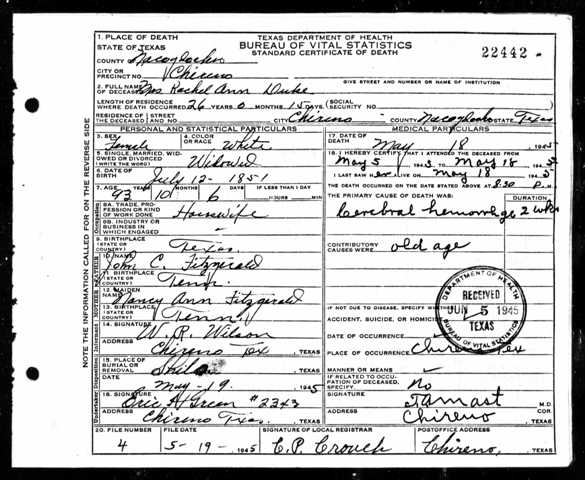 TEXAS DEPARTMENT OF HEALTH
BUREAU OF VITAL STATISTICS
STANDARD CERTIFICATE OF DEATH
22442
NOTE THE INFORMATION CALLED FOR ON THE REVERSE SIDE
1. PLACE OF DEATH
STATE OF TEXAS
COUNTY Nacogdoches
CITY OR PRECINCT NO. Chireno
GIVE STREET AND NUMBER OR NAME OF INSTITUTION
2. FULL NAME OF DECEASED Mrs Rachel Ann Duke
LENGTH OF RESIDENCE WHERE DEATH OCCURRED 26 YEARS 0 MONTHS 15 DAYS SOCIAL SECURITY NO.
RESIDENCE OF THE DECEASED STREET AND NO. CITY Chireno COUNTY Nacogdoches STATE Texas
PERSONAL AND STATISTICAL PARTICULARS
3. SEX Female
4. COLOR OR RACE White
5. SINGLE, MARRIED, WIDOWED OR DIVORCED (WRITE THE WORD) Widowed
6. DATE OF BIRTH July 12-1851
7. AGE 93 YEARS 10 MONTHS 6 DAYS IF LESS THAN 1 DAY HOURS MIN
8A. TRADE, PROFESSION OR KIND OF WORK DONE Housewife
8B. INDUSTRY OR BUSINESS IN WHICH ENGAGED
9. BIRTHPLACE (STATE OR COUNTRY) Texas
10. NAME John C. Fitzgerald
11. BIRTHPLACE (STATE OR COUNTRY) Tenn.
12. MAIDEN NAME Nancy Ann Fitzgerald
13. BIRTHPLACE (STATE OR COUNTRY) Tenn.
14. SIGNATURE W. R. Wilson
ADDRESS Chireno Tex, TEXAS
15. PLACE OF BURIAL OR REMOVAL
TEXAS
DATE May-19. 1945
16. SIGNATURE Eric A Green #2343
ADDRESS Chireno Texas. TEXAS
MEDICAL PARTICULARS
17. DATE OF DEATH May 18 1945
18. I HEREBY CERTIFY THAT I ATTENDED THE DECEASED FROM
May 5 1945 TO May 18 1945
I LAST SAW HER ALIVE ON May 18 1945
THE DEATH OCCURRED ON THE DATE STATED ABOVE AT 8:30 P. M.
THE PRIMARY CAUSE OF DEATH WAS: DURATION
Cerebral hemorrhage 2 wks
CONTRIBUTORY CAUSES WERE: old age
RECEIVED
JUN 5 1945
TEXAS
DEPARTMENT OF HEALTH
BUREAU OF VITAL STATISTICS
IF NOT DUE TO DISEASE, SPECIFY
ACCIDENT, SUICIDE, OR HOMICIDE
DATE OF OCCURRENCE
PLACE OF OCCURRENCE Chireno Tex
MANNER OR MEANS
IF RELATED TO OCCUPATION OF DECEASED, SPECIFY No
SIGNATURE M.D.
ADDRESS Chireno COR. TEXAS
20. FILE NUMBER 4
FILE DATE 5-19-1945
SIGNATURE OF LOCAL REGISTRAR C.P. Crouch
POSTOFFICE ADDRESS Chireno, TEXAS